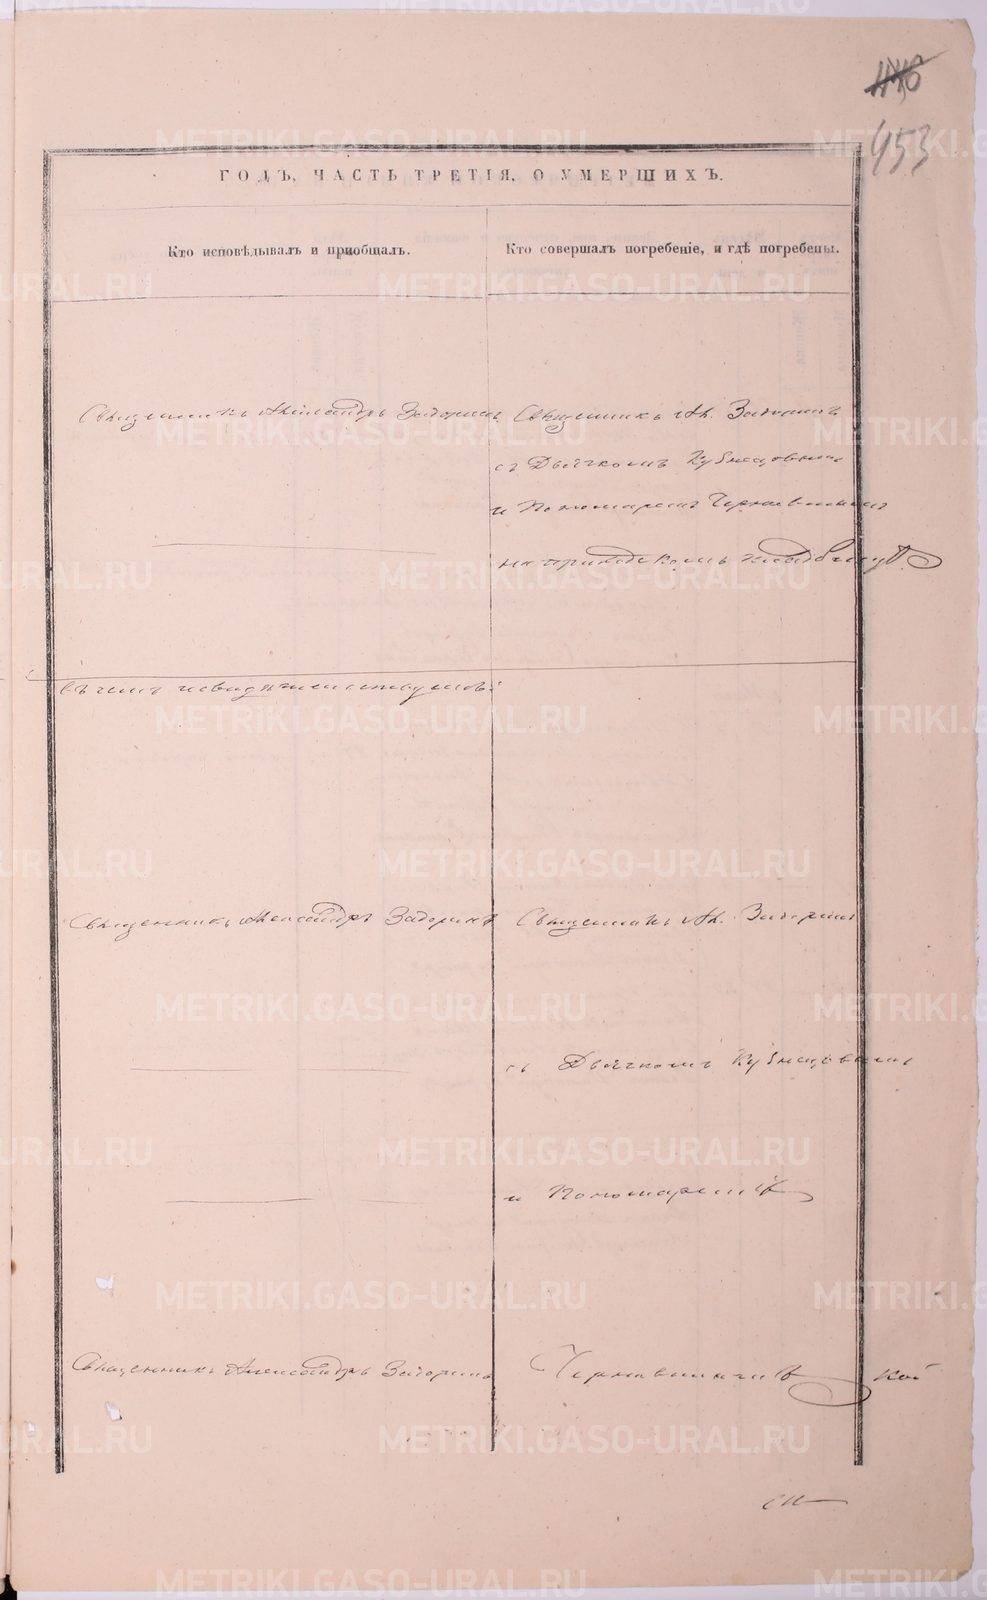 453
ГОДЪ, ЧАСТЬ ТРЕТІЯ, О УМЕРШИХЪ.
Кто исповѣдывалъ и приобщалъ.
Кто совершалъ погребеніе, и гдѣ погребены.
Священникъ Александръ Задоринъ
Священникъ Ал. Задоринъ
съ Дьячкомъ Кузнецовымъ
и Пономаремъ
на приходскомъ кладбищѣ.
въ чемъ и свидѣтельствуемъ:
Священникъ Александръ Задоринъ
Священникъ Ал. Задоринъ
съ Дьячкомъ Кузнецовымъ
и Пономаремъ
Священникъ Александръ Задоринъ
METRIKI.GASO-URAL.RU